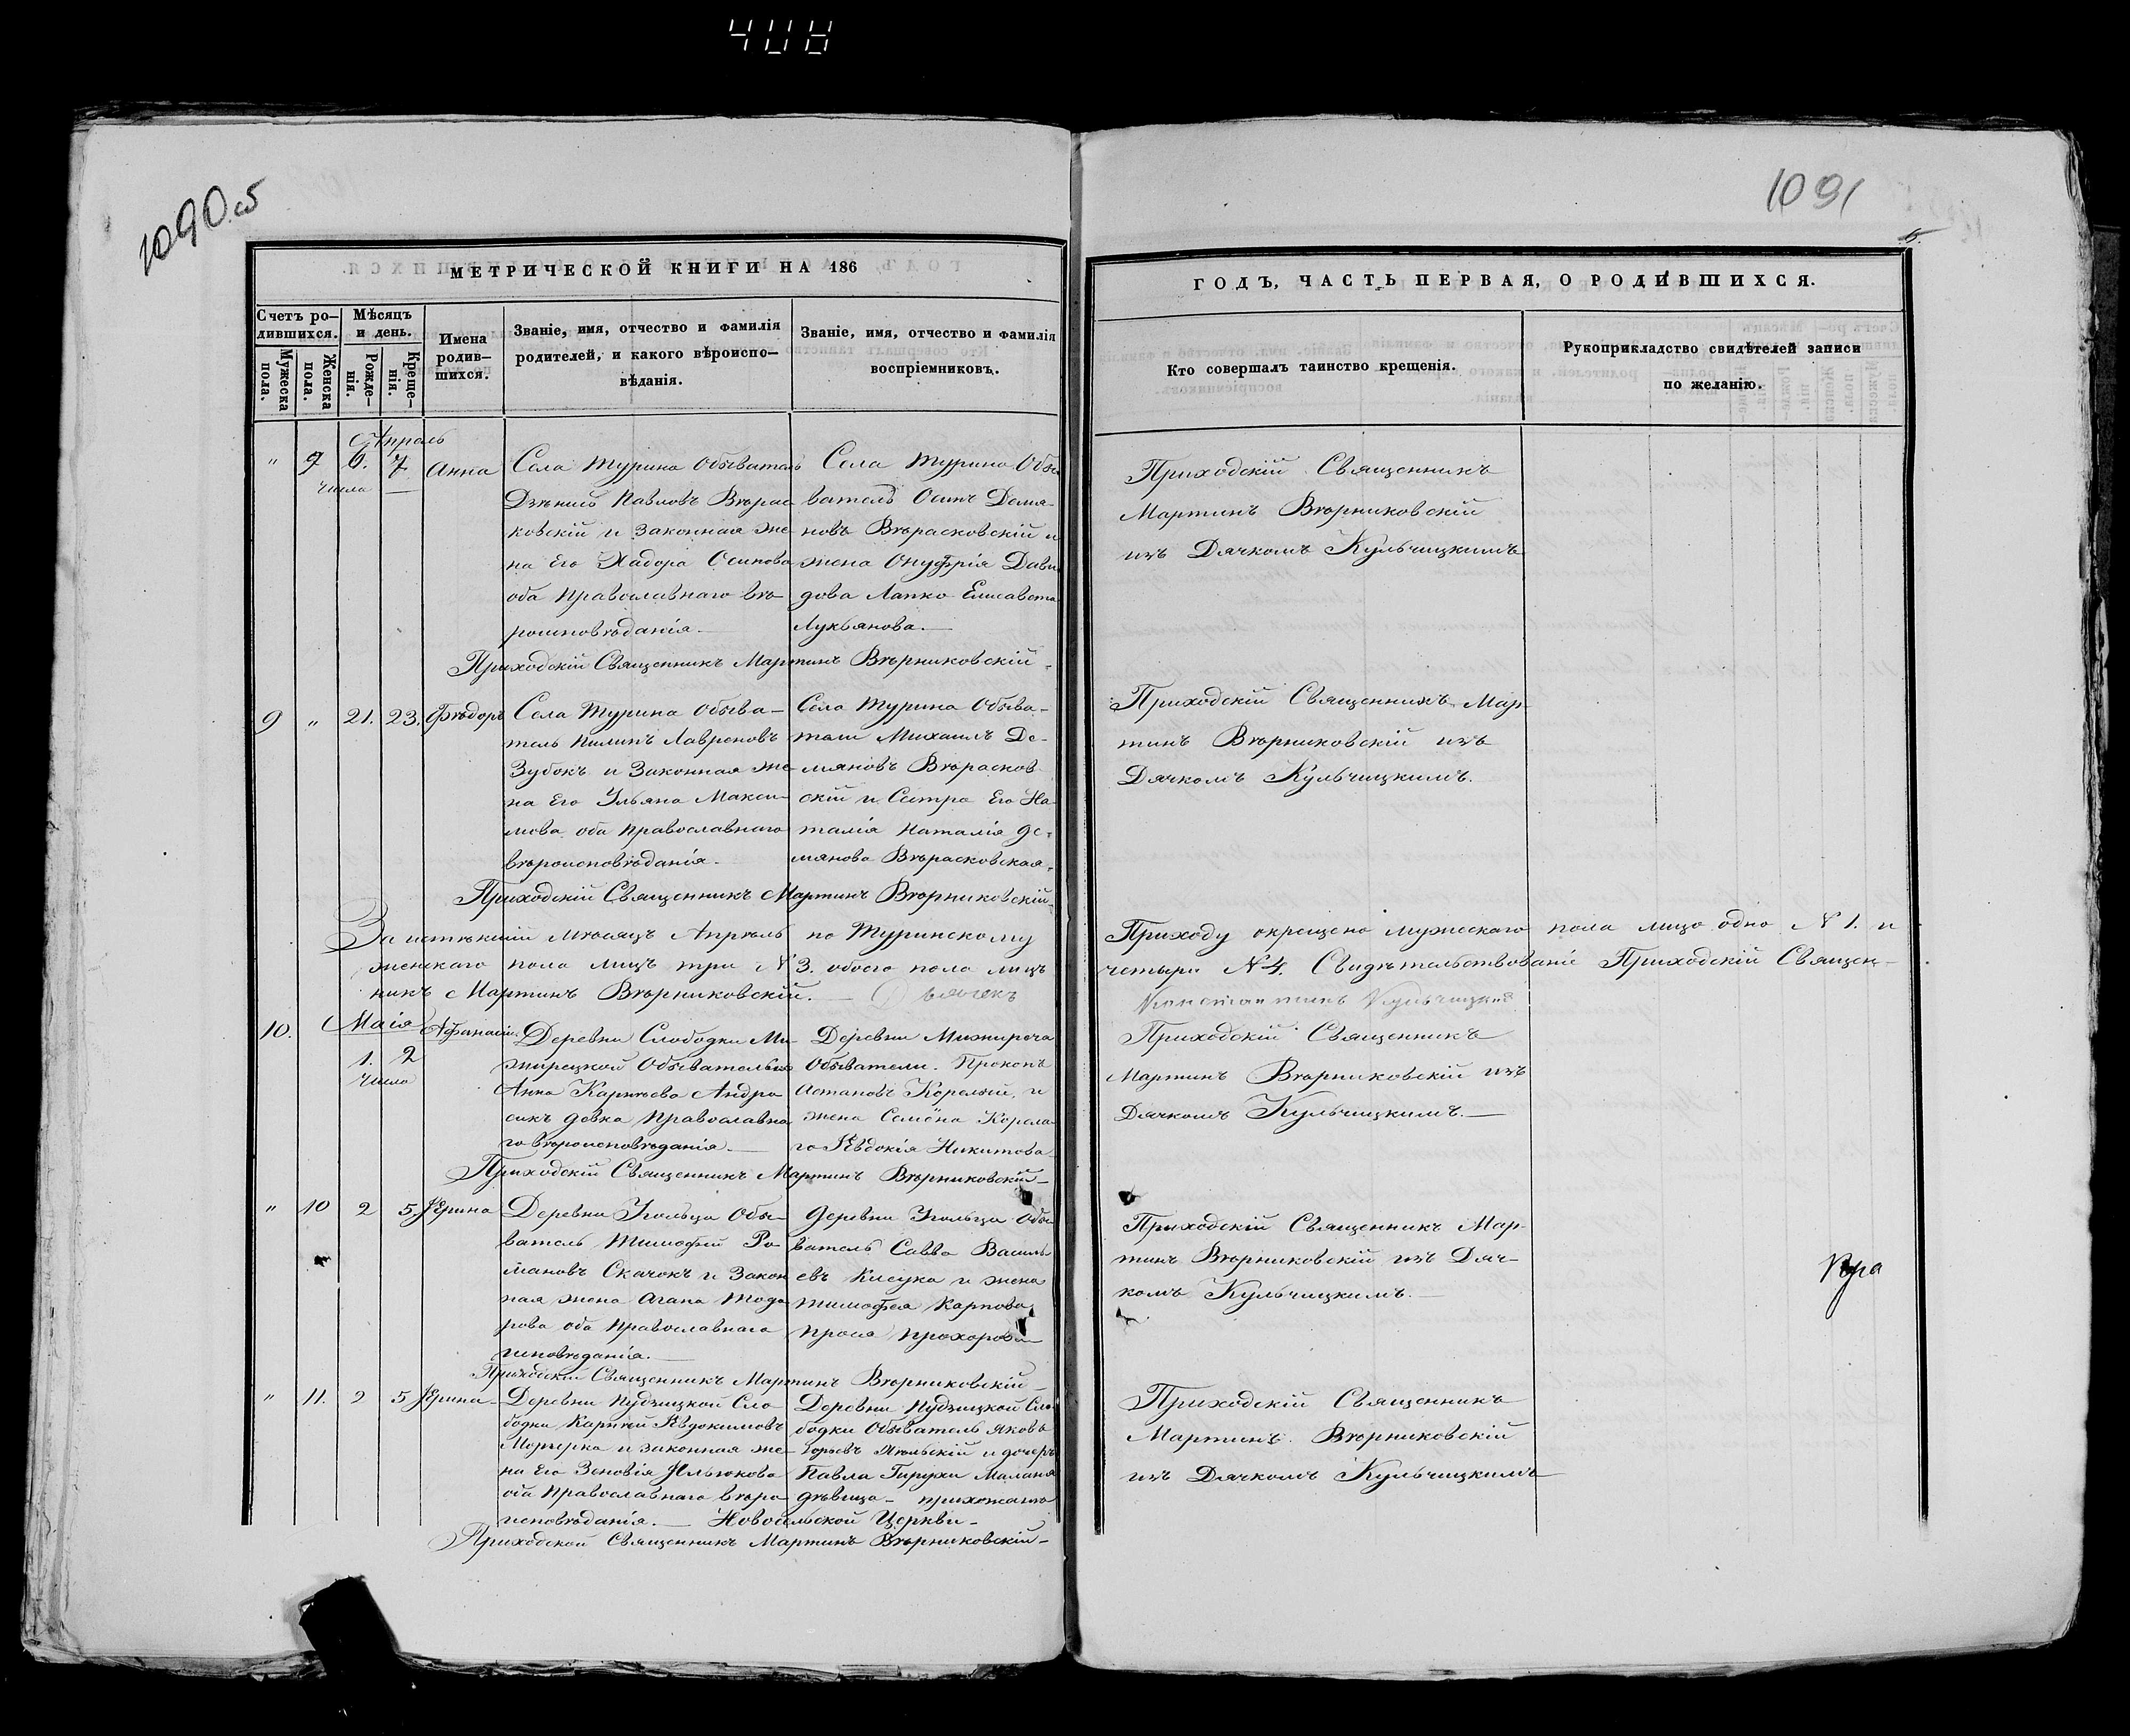 408
1090 об
МЕТРИЧЕСКОЙ КНИГИ НА 186
Счетъ ро-
дившихся.
Мужеска
пола.
Женска
пола.
Мѣсяцъ
и день.
Рожде-
нія.
Креще-
нія.
Имена
родив-
шихся.
Званіе, имя, отчество и фамилія
родителей, и какого вѣроиспо-
вѣданія.
Званіе, имя, отчество и фамилія
воспріемниковъ.
Апраль
" 9 6. 7 Анна
числа
Села Турина Обыватель
Павловъ Вѣрас
ковскій и Законная же
на Его Хадора Осипова
оба Православнаго вѣ
роисповѣданія.
Села Турина Обы
ватель Осипъ Демя
новъ Вѣрасковскій и
жена Онуфрія Дави
дова Лапко Елисавета
Лукьянова.
Приходскій Священникъ Мартинъ Вѣрниковскій
9 " 21. 23. Фѣодоръ
Села Турина Обыва-
тель Пилипъ Лавреновъ
Зубокъ и Законная же
на Его Ульяна Макси-
мова оба Православнаго
вѣроисповѣданія.
Села Турина Обыва-
тели Михаилъ Де-
мяновъ Вѣрасков
скій и Сестра Его На
талія Наталія де-
мянова Вѣрасковская.
Приходскій Священникъ Мартинъ Вѣрниковскій
За истѣкшій Мѣсяцъ Апрѣль по Туринскому
женскаго пола лицъ три N 3. обоего пола лицъ
никъ Мартинъ Вѣрниковскій. Дьячекъ
10. Маія Афанасій
1. 2
числа
Деревни Слободки Ми-
жирецкой Обывателька
Анна Карнѣева Андро
сикъ девка Православна
го вѣроисповѣданія.
Деревни Мижиреча
Обыватели. Прокопъ
Астаповъ Корелый, и
жена Семёна Корела
го Евдокія Никитова
Приходскій Священникъ Мартинъ Вѣрниковскій
" 10 2 5. Ерина
Деревни Угольца Обы-
ватель Тимофей Ро
мановъ Скачокъ и Закон
ная жена Агапа Тода
рова оба Православнаго
исповѣданія.
Деревни Угольца Обы
ватель Савва Василь
евъ и жена
Тимофея Карпова
Прося Прохорова
Приходскій Священникъ Мартинъ Вѣрниковскій
" 11. 2 5 Ерина
Деревни Пудзицкой Сло
бодки Карнѣй Евдокимовъ
и законная же-
на Его Зеновія Ильюкова
оба Православнаго вѣро
исповѣданія.
Деревни Пудзицкой Сло
бодки Обыватель Яковъ
и дочерь
Павла Гирухи Маланя
дѣвица - прихожано
Новосельской Церкви
Приходской Священникъ Мартинъ Вѣрниковскій
1091
5.
ГОДЪ, ЧАСТЬ ПЕРВАЯ, О РОДИВШИХСЯ.
Кто совершалъ таинство крещенія.
Рукоприкладство свидѣтелей записи
по желанію.
Приходскій Священникъ
Мартинъ Вѣрниковскій
изъ Дячкомъ Кульчицкимъ
Приходскій Священникъ Мар
тинъ Вѣрниковскій изъ
Дячкомъ Кульчицкимъ.
Приходу окрещено мужескаго пола лицо одно N 1. и
четыри N 4. Приходскій Священ-
Константинъ Кульчицкій
Приходскій Священникъ
Мартинъ Вѣрниковскій изъ
Дячкомъ Кульчицкимъ.
Приходскій Священникъ Мар-
тинъ Вѣрниковскій изъ Дяч-
комъ Кульчицкимъ.
Приходскій Священникъ
Мартинъ Вѣрниковскій
изъ Дячкомъ Кульчицкимъ